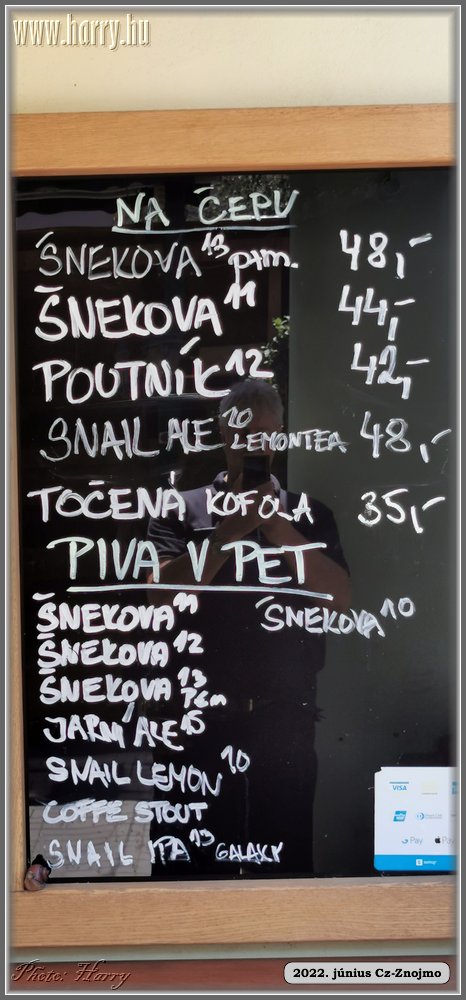 www.harry.hu
NA ČEPU
ŠNEKOVA 13 ptm. 48,-
ŠNEKOVA 11 44,-
POUTNÍK 12 42,-
SNAIL ALE 10 LEMONTEA 48,-
TOČENÁ KOFOLA 35,-
PIVA V PET
ŠNEKOVA 11 ŠNEKOVA 10
ŠNEKOVA 12
ŠNEKOVA 13
JARNÍ ALE 15
SNAIL LEMON 10
COFFE STOUT
SNAIL IPA 13 GALAXY
VISA
Pay Pay
Photo: Harry
2022. június Cz-Znojmo